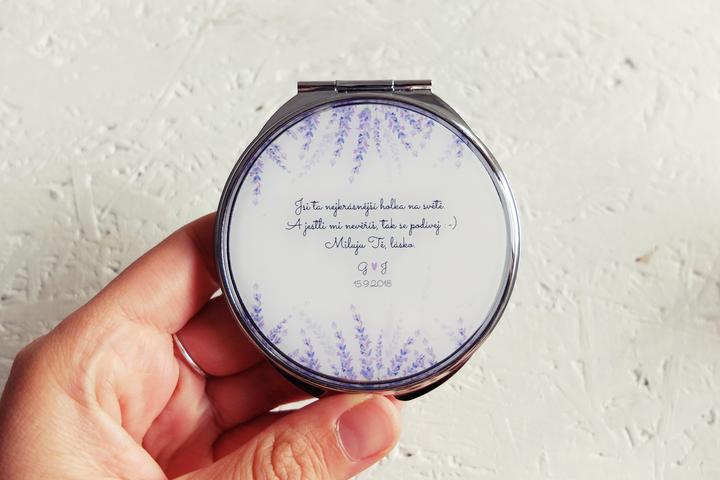 Jsi ta nejkrásnější holka na světě.
A jestli mi nevěříš, tak se podívej :-)
Miluju Tě, lásko.
G ♥ J
15.9.2018